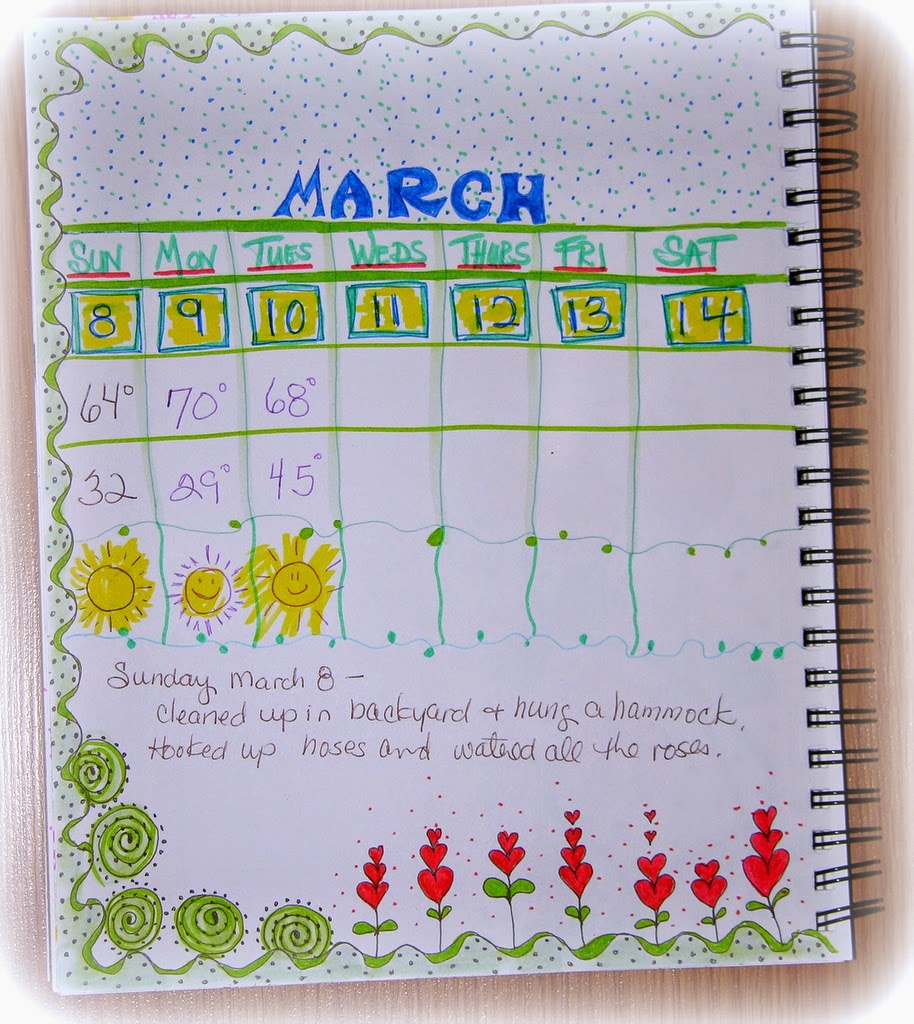 MARCH
SUN MON TUES WEDS THURS FRI SAT
8 9 10 11 12 13 14
64° 70° 68°
32 29° 45°
Sunday March 8 –
cleaned up in backyard + hung a hammock.
Hooked up hoses and watered all the roses.